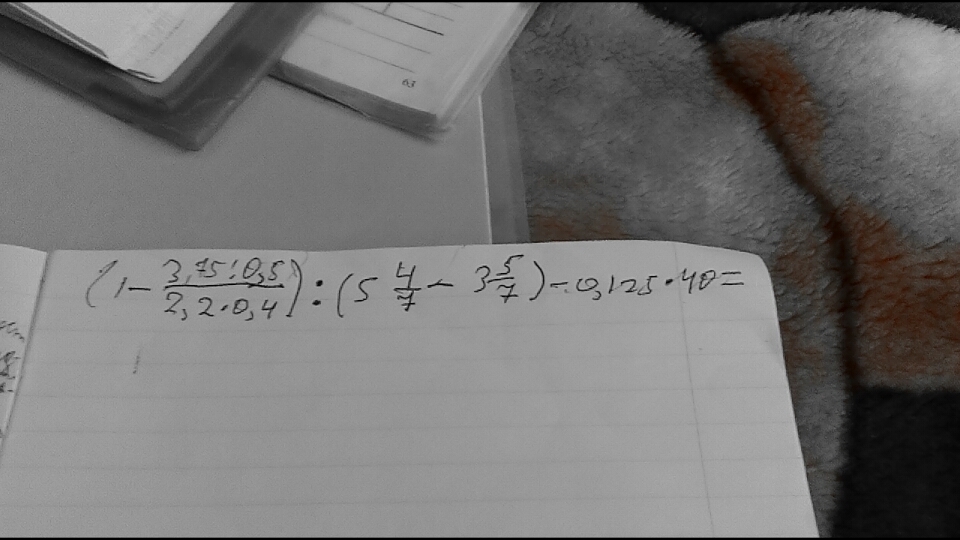 (1 - \frac{3,75:0,5}{2,2·0,4}) : (5\frac{4}{7} - 3\frac{5}{7}) - 0,125·40=